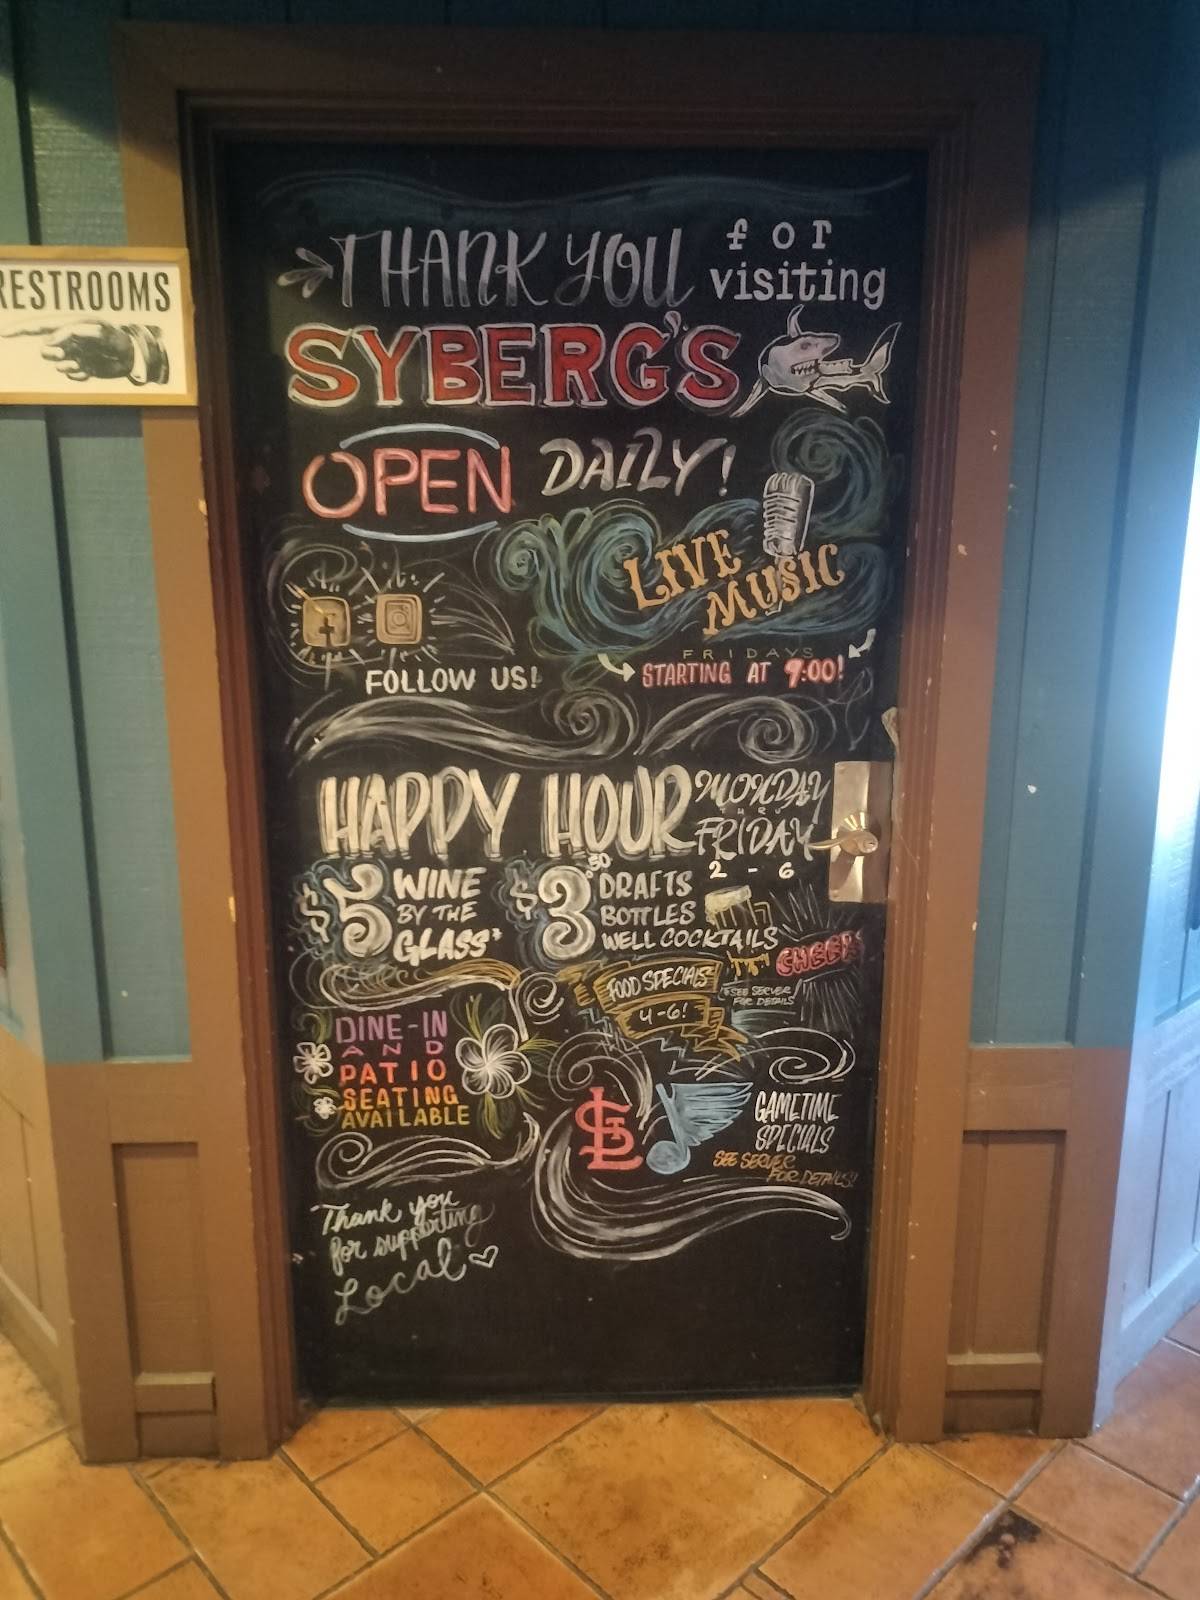 RESTROOMS
THANK YOU for visiting
SYBERG'S
OPEN DAILY!
LIVE
MUSIC
FRIDAYS
STARTING AT 9:00!
f
FOLLOW US!
HAPPY HOUR MONDAY
THRU
FRIDAY
2 - 6
$5 WINE
BY THE
GLASS*
$3.50 DRAFTS
BOTTLES
WELL COCKTAILS
CHEERS
FOOD SPECIALS
4-6!
*SEE SERVER
FOR DETAILS
DINE-IN
AND
PATIO
SEATING
AVAILABLE
STL
GAMETIME
SPECIALS
SEE SERVER
FOR DETAILS!
Thank you
for supporting
Local